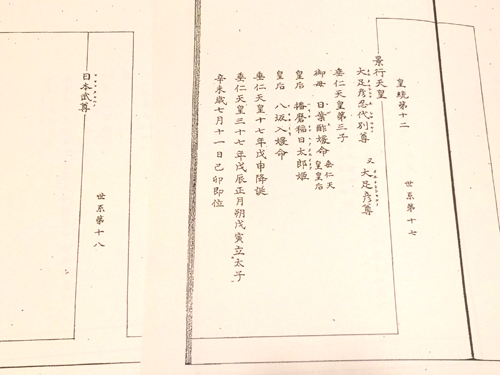 皇統第十二
世系第十七
景行天皇
大足彦忍代別尊 又 大足彦尊
垂仁天皇第三子
御母 日葉酢媛命 垂仁天皇皇后
皇后 播磨稲日太郎姫
皇后 八坂入媛命
垂仁天皇十七年戊申降誕
垂仁天皇三十七年戊辰正月朔戊寅立太子
辛未歳七月十一日己卯即位
日本武尊
世系第十八